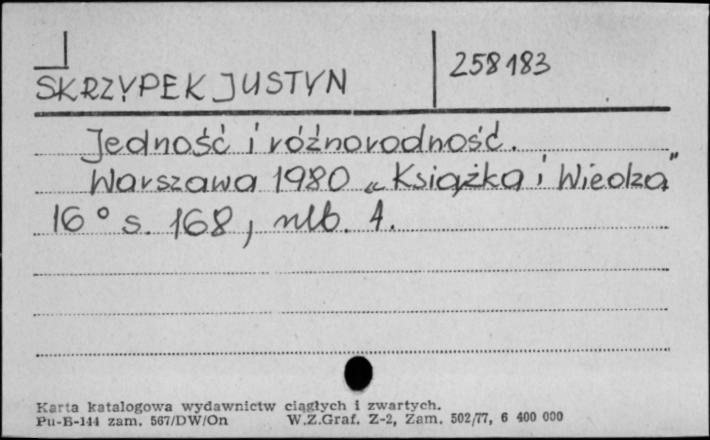 SKRZYPEK JUSTYN 258183
Jedność i różnorodność.
Warszawa 1980 „Książka i Wiedza”
16° s. 168, nlb. 4.
Karta katalogowa wydawnictw ciągłych i zwartych.
Pu-B-144 zam. 567/DW/On W.Z.Graf. Z-2, Zam. 502/77, 6 400 000